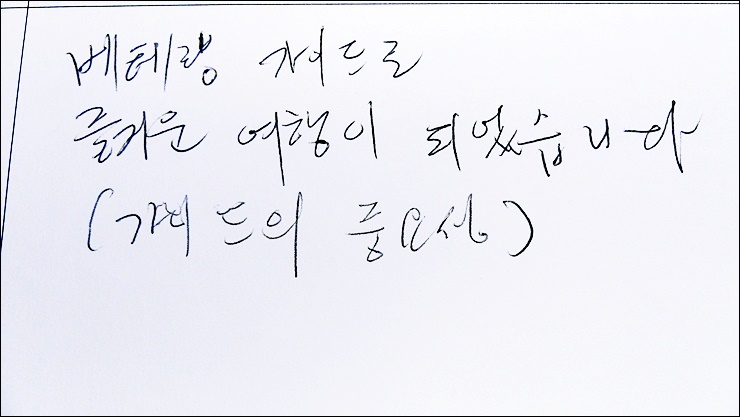 베테랑 가이드로
즐거운 여행이 되었습니다
(가이드의 중요성)